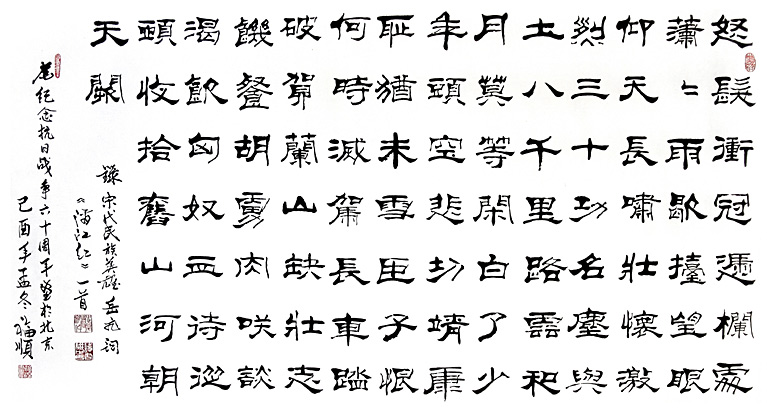 怒髮衝冠憑欄處
蕭々雨歇擡望眼
仰天長嘯壯懷激
烈三十功名塵與
土八千里路雲和
月莫等閑白了少
年頭空悲切靖康
耻猶未雪臣子恨
何時滅駕長車踏
破賀蘭山缺壯志
饑餐胡虜肉咲談
渴飲匈奴血待從
頭收拾舊山河朝
天闕
錄宋代民族英雄岳飛詞
《滿江红》一首
為纪念抗日战争六十周年書於北京
乙酉年孟冬福順